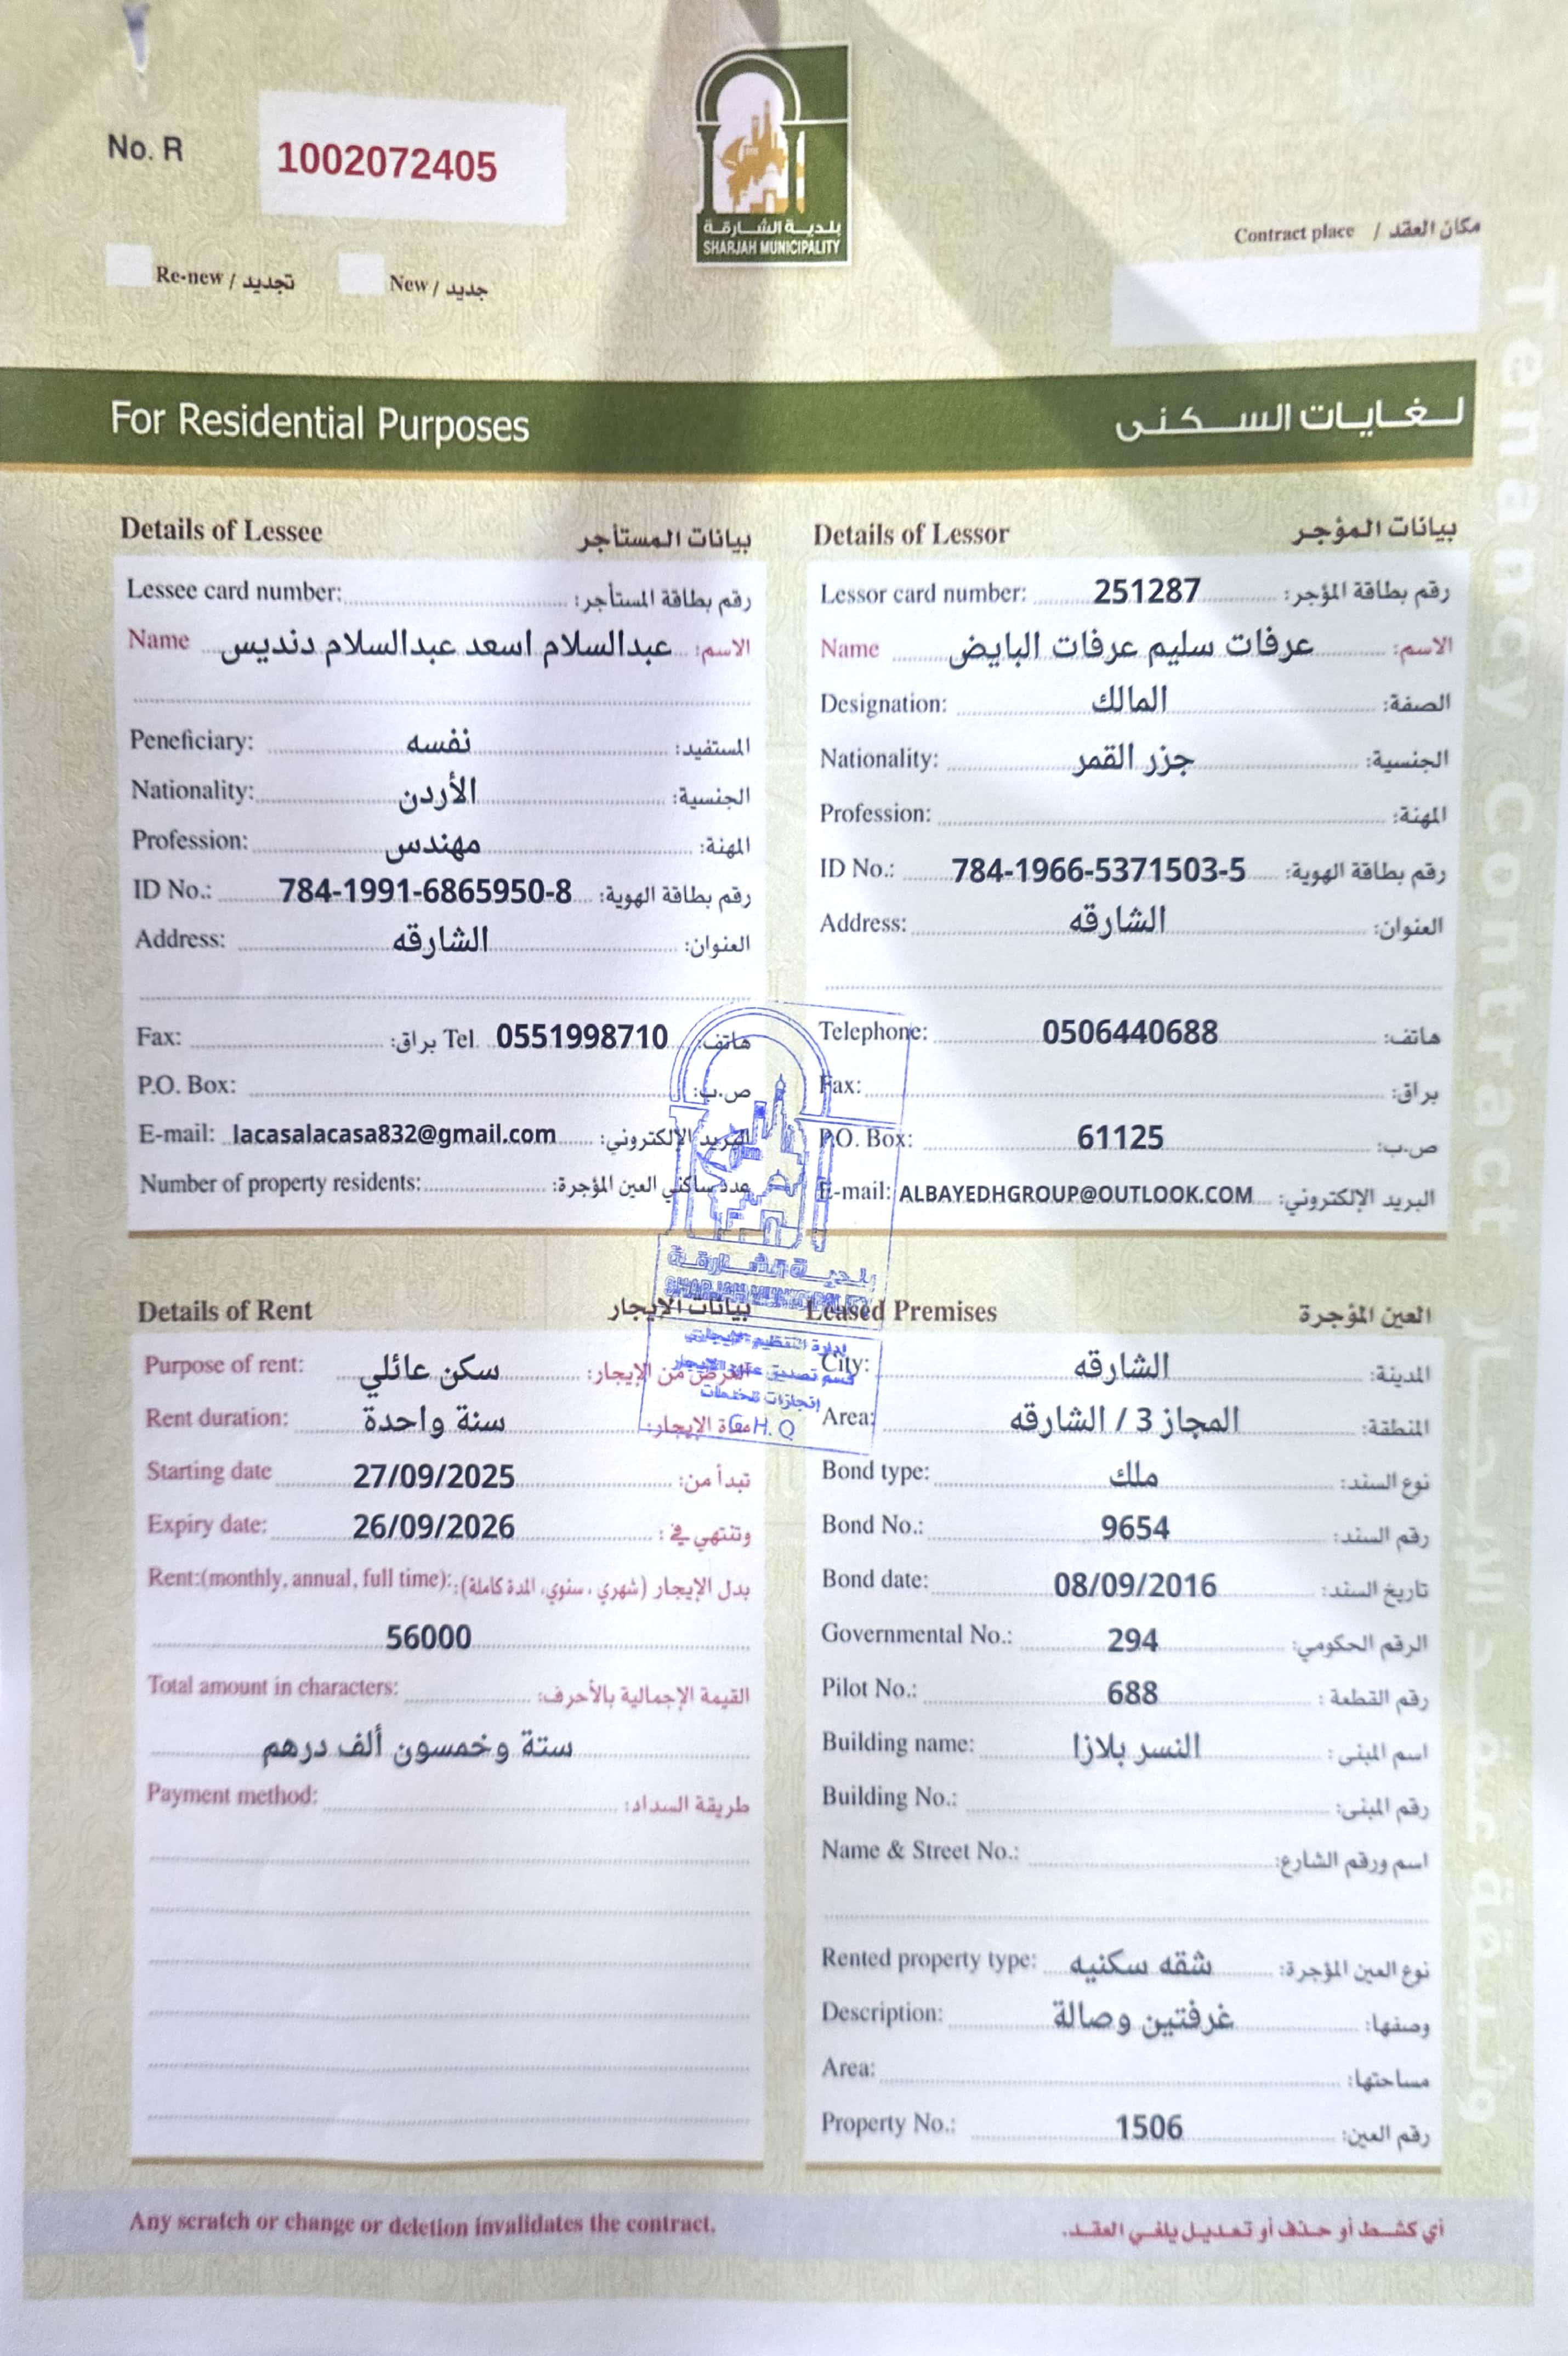 No. R 1002072405
بلدية الشارقة
SHARJAH MUNICIPALITY
Contract place / مكان العقد
Re-new / تجديد New / جديد
For Residential Purposes لغايات السكنى
Details of Lessee بيانات المستأجر
Lessee card number: رقم بطاقة المستأجر:
Name عبدالسلام اسعد عبدالسلام دنديس الاسم:
Peneficiary: نفسه المستفيد:
Nationality: الأردن الجنسية:
Profession: مهندس المهنة:
ID No.: 784-1991-6865950-8 رقم بطاقة الهوية:
Address: الشارقه العنوان:
Fax: براق: Tel. 0551998710 هاتف:
P.O. Box: ص.ب:
E-mail: lacasalacasa832@gmail.com البريد الإلكتروني:
Number of property residents: عدد ساكني العين المؤجرة:
Details of Lessor بيانات المؤجر
Lessor card number: 251287 رقم بطاقة المؤجر:
Name عرفات سليم عرفات البايض الاسم:
Designation: المالك الصفة:
Nationality: جزر القمر الجنسية:
Profession: المهنة:
ID No.: 784-1966-5371503-5 رقم بطاقة الهوية:
Address: الشارقه العنوان:
Telephone: 0506440688 هاتف:
Fax: براق:
P.O. Box: 61125 ص.ب:
E-mail: ALBAYEDHGROUP@OUTLOOK.COM البريد الإلكتروني:
بلدية الشارقة
SHARJAH MUNICIPALITY
إدارة التنظيم الإيجاري
قسم تصديق عقود الإيجار
G.H.Q
Details of Rent بيانات الايجار
Purpose of rent: سكن عائلي الغرض من الإيجار:
Rent duration: سنة واحدة مدة الإيجار:
Starting date 27/09/2025 تبدأ من:
Expiry date: 26/09/2026 وتنتهي في :
Rent:(monthly, annual, full time): بدل الإيجار (شهري ، سنوي، المدة كاملة):
56000
Total amount in characters: القيمة الإجمالية بالأحرف:
ستة وخمسون ألف درهم
Payment method: طريقة السداد:
Leased Premises العين المؤجرة
City: الشارقه المدينة:
Area: المجاز 3 / الشارقه المنطقة:
Bond type: ملك نوع السند:
Bond No.: 9654 رقم السند:
Bond date: 08/09/2016 تاريخ السند:
Governmental No.: 294 الرقم الحكومي:
Pilot No.: 688 رقم القطعة :
Building name: النسر بلازا اسم المبنى :
Building No.: رقم المبنى:
Name & Street No.: اسم ورقم الشارع:
Rented property type: شقه سكنيه نوع العين المؤجرة:
Description: غرفتين وصالة وصفها:
Area: مساحتها:
Property No.: 1506 رقم العين:
Any scratch or change or deletion invalidates the contract. أي كشط أو حذف أو تعديل يلغي العقد.
Tenancy Contract